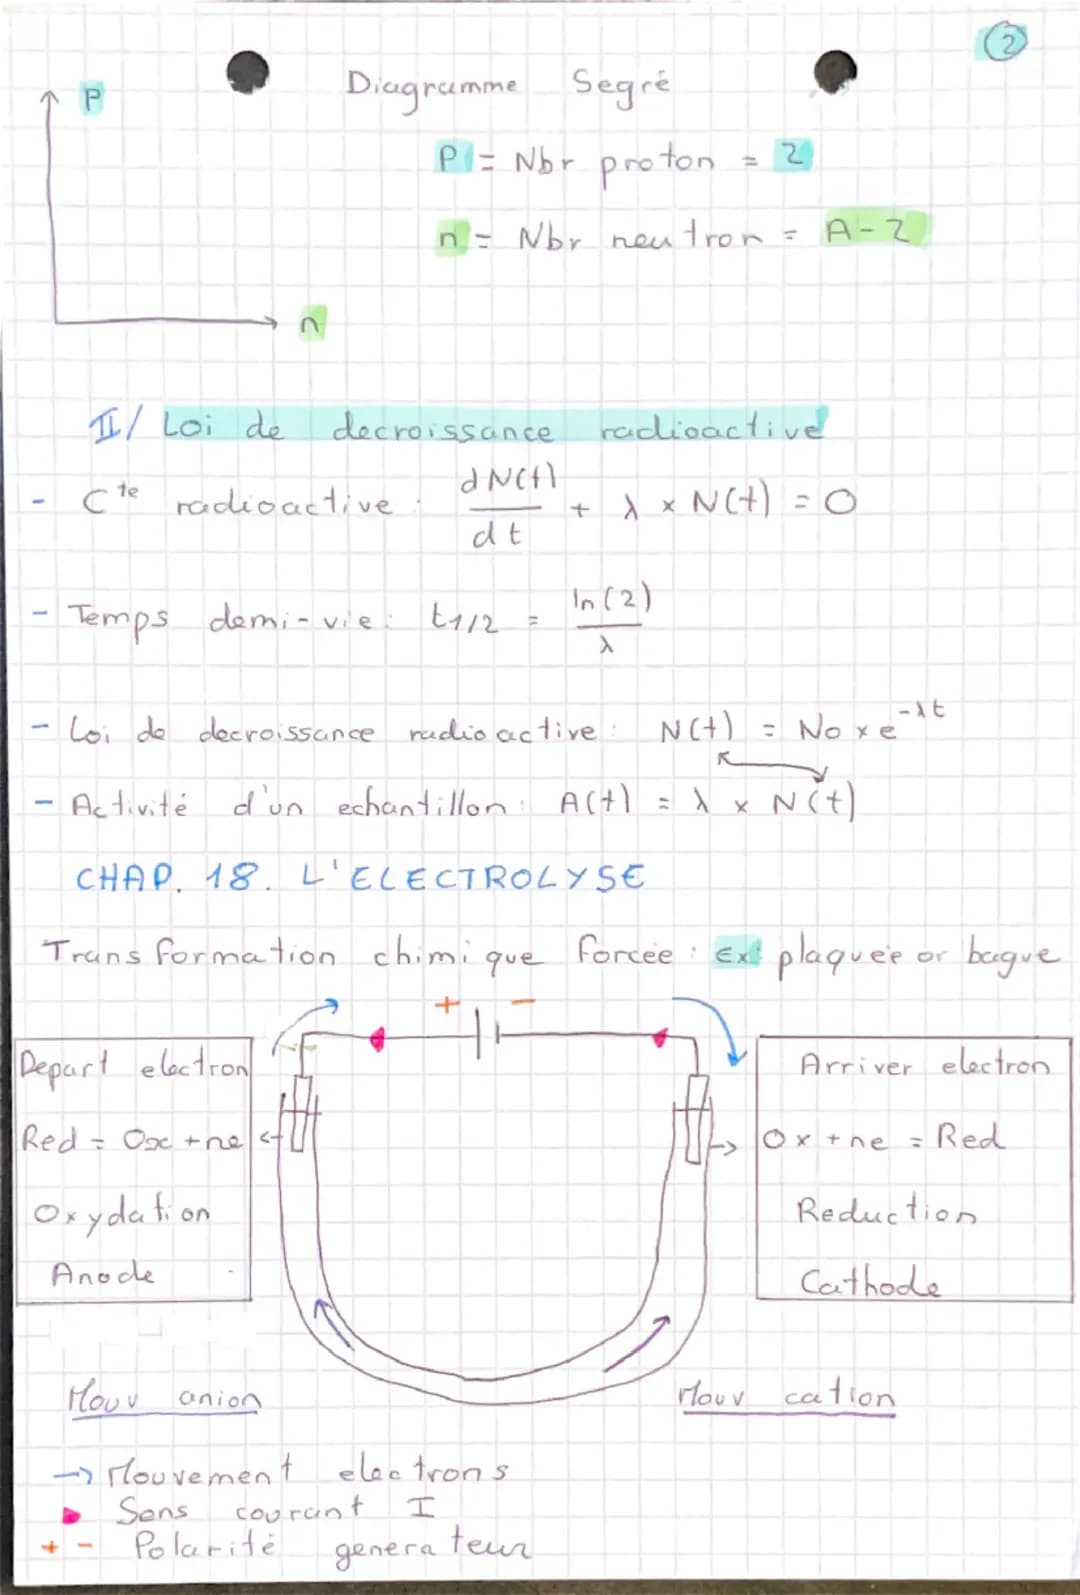 2
Diagramme Segré
P
P = Nbr proton = Z
n = Nbr neutron = A - Z
n
II/ Loi de decroissance radioactive
- Cte radioactive : dN(t)/dt + λ x N(t) = 0
- Temps demi-vie : t1/2 = ln(2)/λ
- Loi de decroissance radioactive : N(t) = No x e^-λt
- Activité d'un echantillon : A(t) = λ x N(t)
CHAP. 18. L'ELECTROLYSE
Transformation chimique forcée : Ex : plaquée or bague
+ -
Depart electron
Red = Ox + ne
Oxydation
Anode
Arriver electron
Ox + ne = Red
Reduction
Cathode
Mouv anion
Mouv cation
→ Mouvement electrons
Sens courant I
+ - Polarité generateur